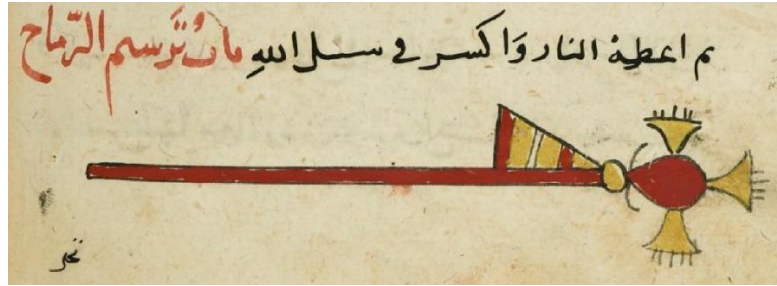 ثم اعطه النار واكسر في سبيل الله باب ترسم الرماح